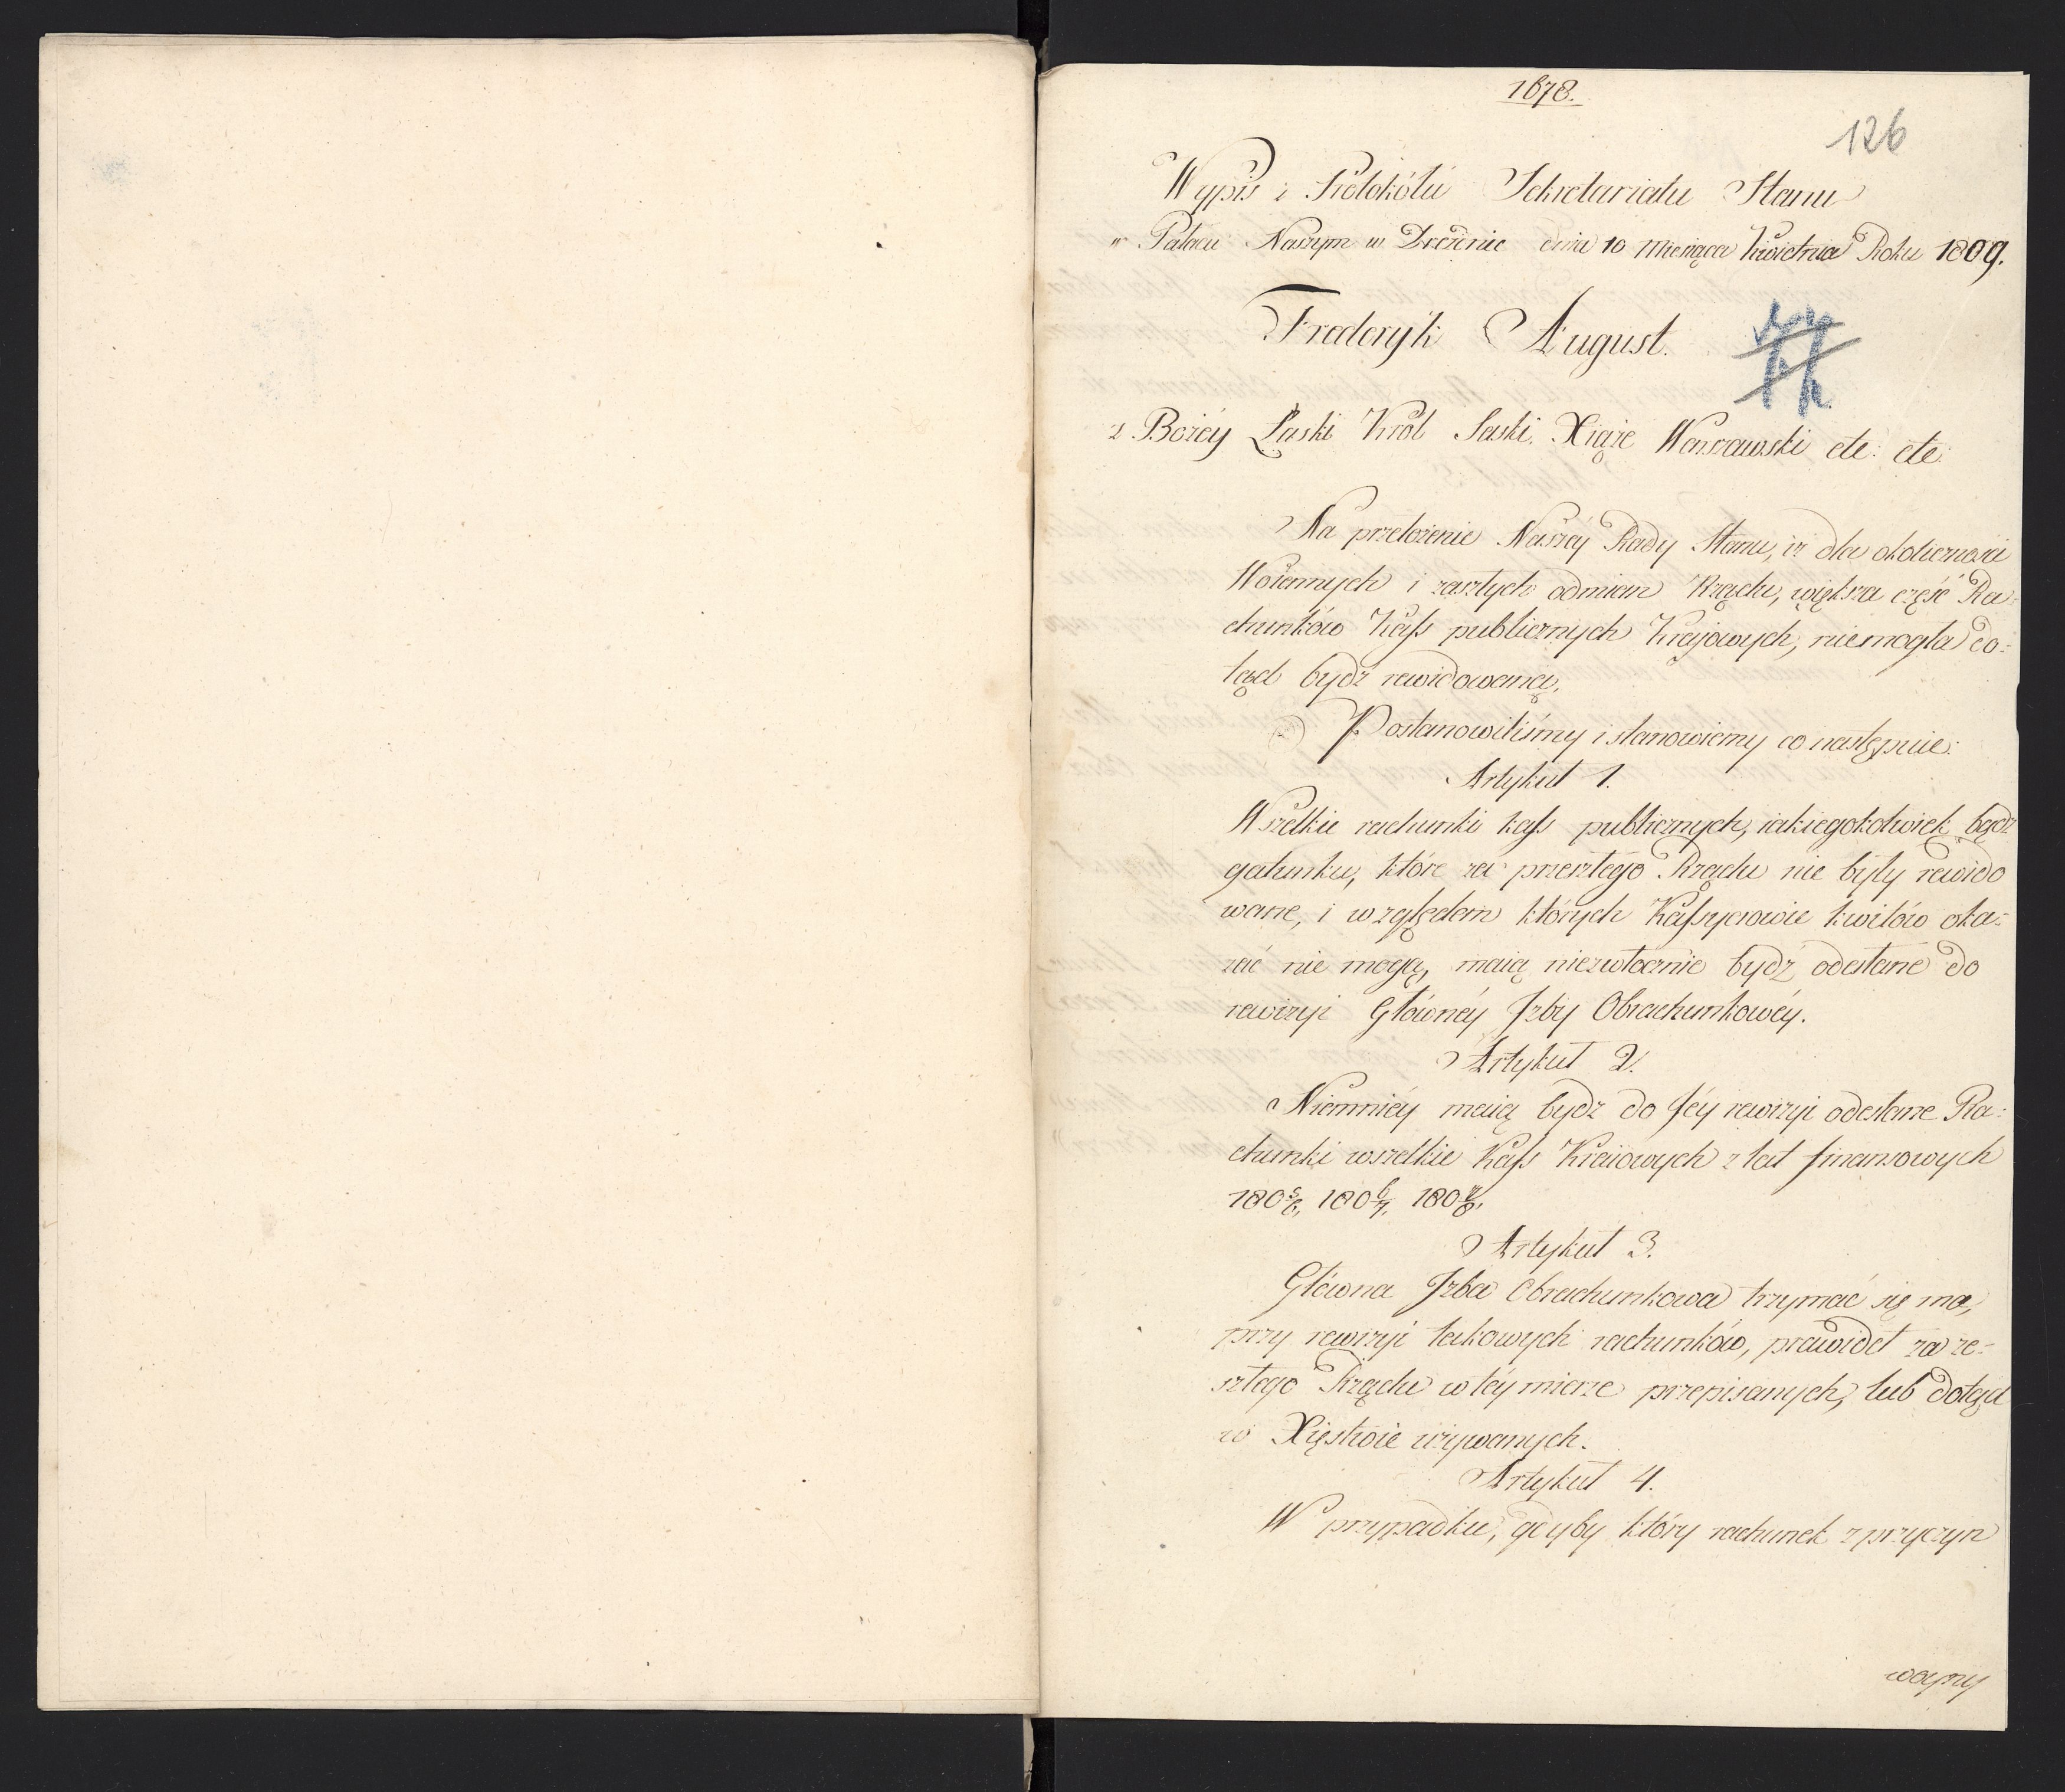 1678.
126
Wypis z Protokółu Sekretariatu Stanu
w Pałacu Naszym w Dreznie dnia 10 Miesiąca Kwietnia Roku 1809.
Frederyk August.
z Bożéy Łaski Król Saski, Xiąże Warszawski etc: etc:
Na przełożenie Naszéy Rady Stanu, iż dla okoliczności
Woiennych i zaszłych odmian Rządu, większa część Ra-
chunków Kass publicznych Krajowych, niemogła do:
tąd bydź rewidowaną,
Postanowiliśmy i stanowiemy co następuie:
Artykuł 1.
Wszelkie rachunki kass publicznych, iakiegokolwiek bądź
gatunku, które za przeszłego Rządu nie były rewido
wane, i względem których Kassyerowie kwitów oka:
zać nie mogą, maią niezwłocznie bydź odesłane do
rewizyi Główney Izby Obrachunkowéy.
Artykuł 2.
Niemniéy maią bydź do Jéy rewizyi odesłane Ra:
chunki wszelkie Kass Kraiowych z lat finansowych
180 5/6, 180 6/7, 180 7/8.
Artykuł 3.
Główna Izba Obrachunkowa trzymać się ma,
przy rewizyi takowych rachunków, prawideł za ze-
szłego Rządu w téy mierze przepisanych, lub dotąd
w Xięstwie używanych.
Artykuł 4.
W przypadku, gdyby który rachunek z przyczyn
woyny